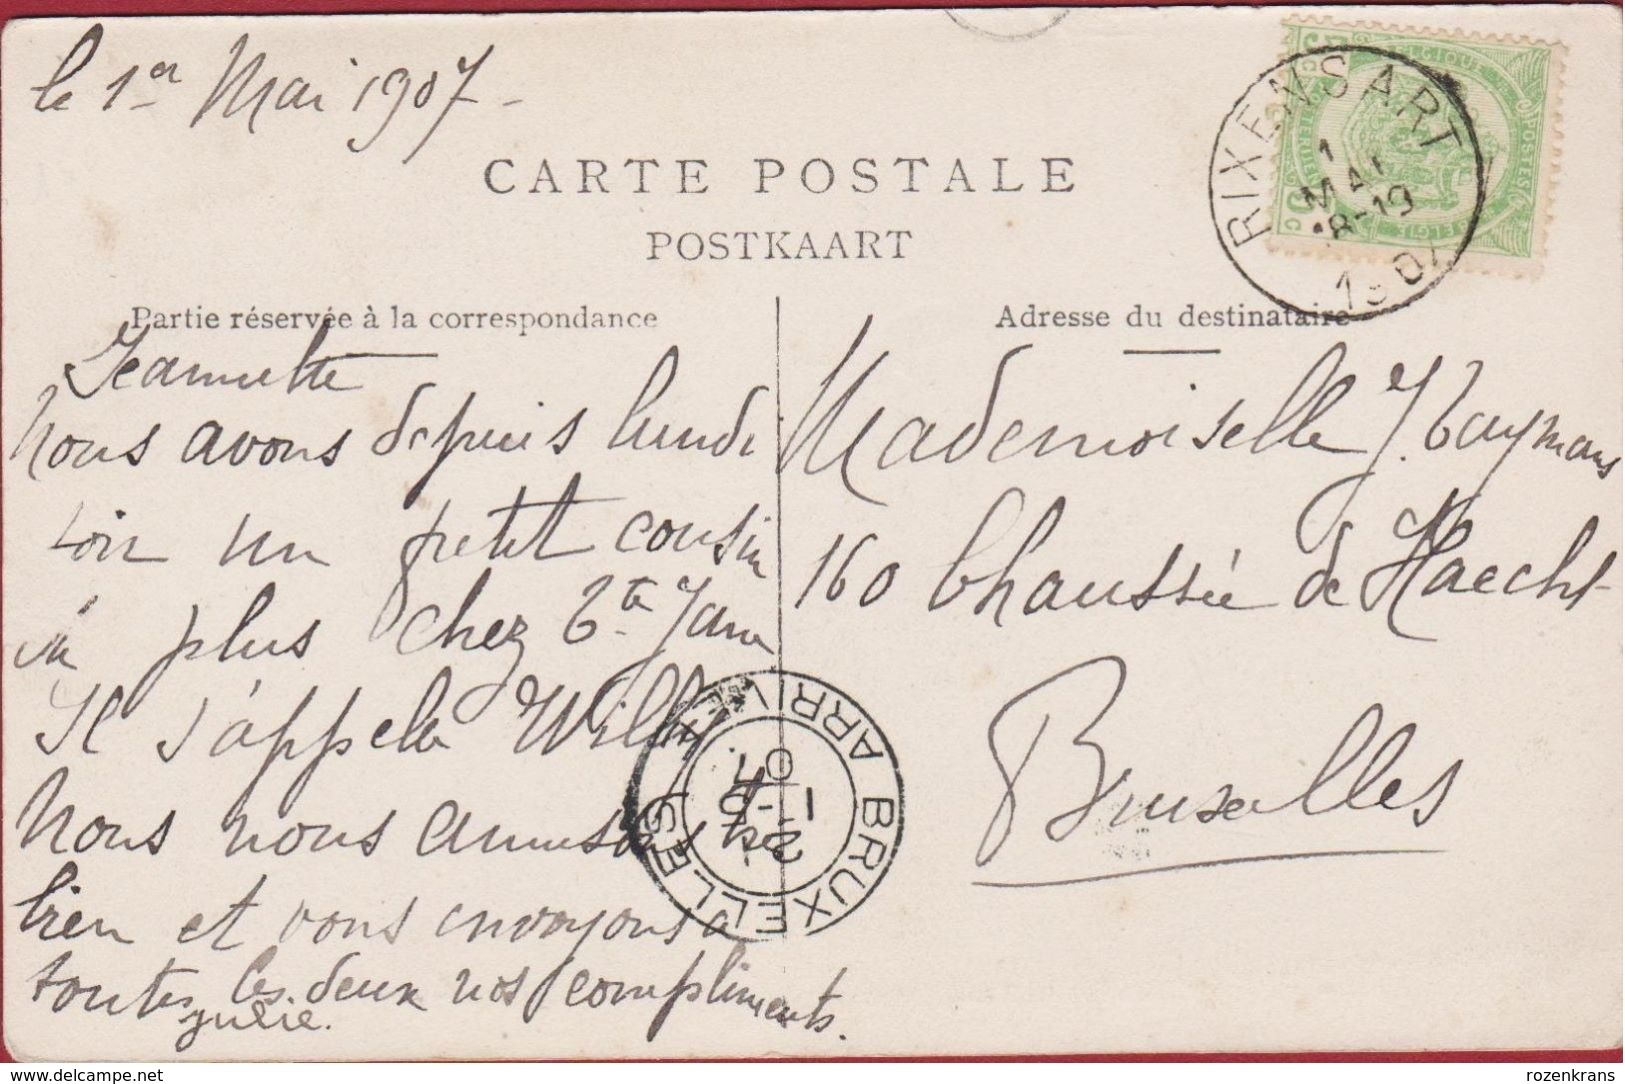 le 1er Mai 1907 -
CARTE POSTALE
POSTKAART
Partie réservée à la correspondance
Jeannette
Nous avons depuis lundi
soir un petit cousin
de plus chez Tte Jane
Il s'appelle Willy
Nous nous amusons
bien et vous envoyons a
toutes les deux nos compliments.
Julie.
Adresse du destinataire
Mademoiselle J.
160 Chaussée de Haecht
Bruxelles
RIXENSART
1
MAI
18-19
1907
BELGIQUE
POSTES
BELGIE
5 c
BRUXELLES
ARRIVEE
rozenkrans
www.delcampe.net